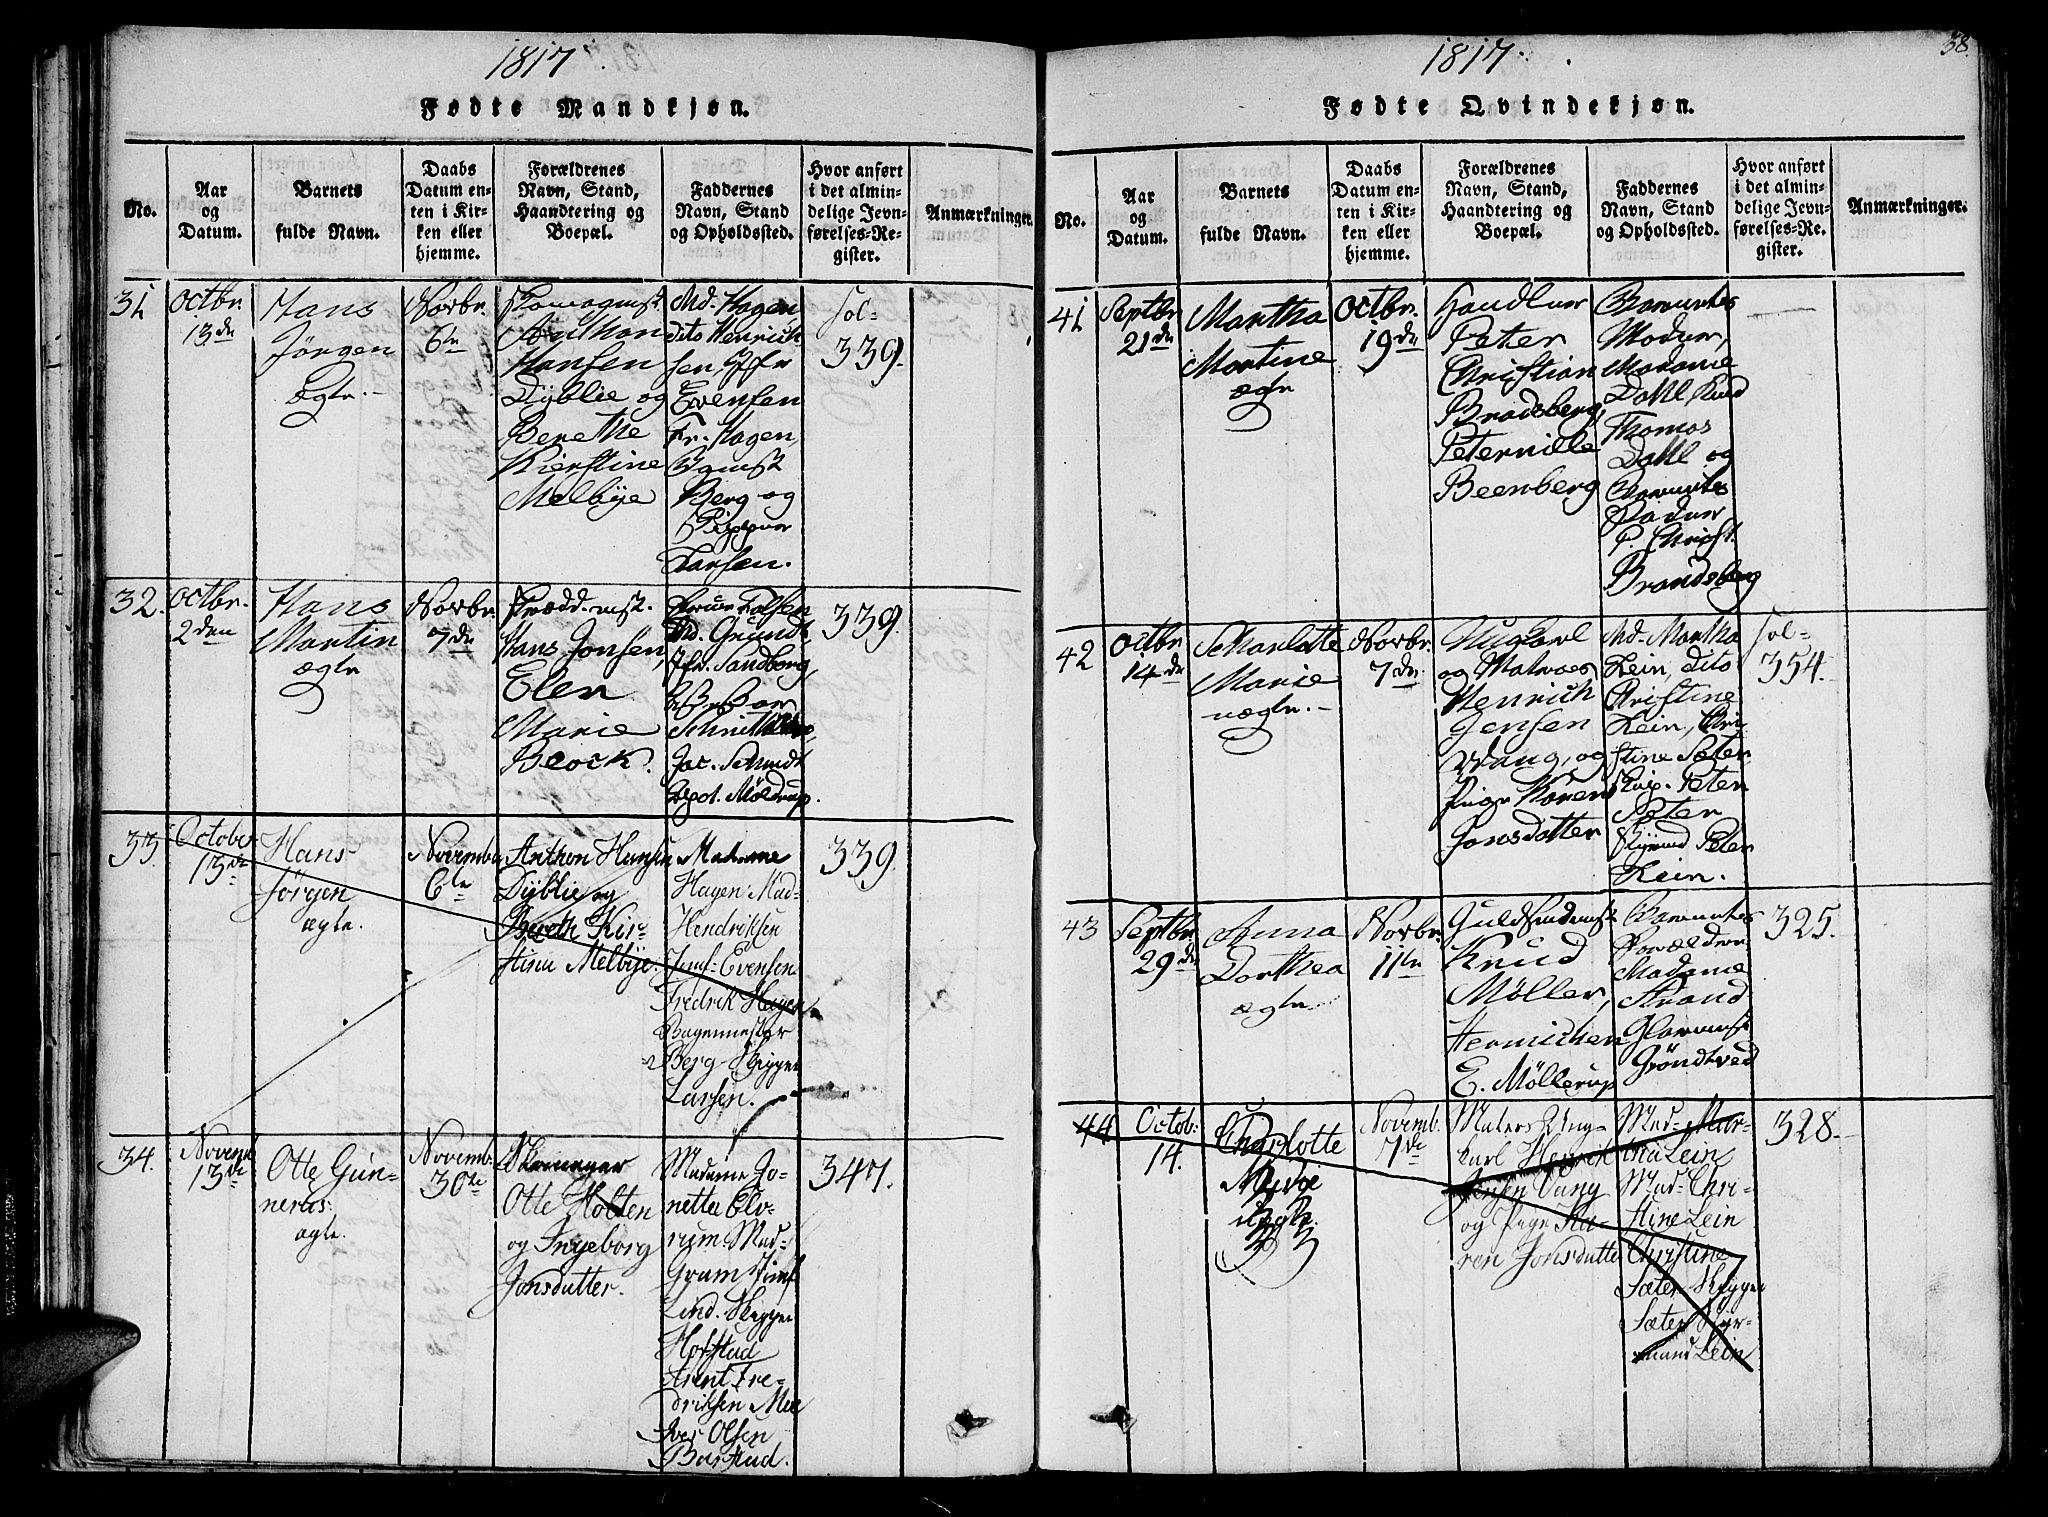 1817.
Fødte Mandkjøn.
No.
Aar
og
Datum.
Barnets
fulde Navn.
Daabs
Datum en-
ten i Kir-
ken eller
hjemme.
Forældrenes
Navn, Stand,
Haandtering og
Boepæl.
Faddernes
Navn, Stand
og Opholdssted.
Hvor anført
i det almin-
delige Jevn-
førelses-Re-
gister.
Anmærkninger.
31
Octbr.
13de
Hans
Jørgen
Ægte.
Novbr.
6te
Anthon
Hansen
Dyblie og
Berethe
Kierstine
Melbye
Md. Hagen
dito Henrich
sen, Jfr
Evensen
Fr. Hagen,
Berg og
Larsen.
Fol-
339.
32.
Octbr.
2den
Hans
Martin
ægte
Novbr.
7de
Hans Jonsen,
Elen
Marie
Block.
Md. Grundt
Jfr. Sandborg,
Jac. Schmidt
Møldrup.
339.
33.
October
13de
Hans
Jørgen
ægte.
Novemb.
6te
Anthon Hansen
Dyblie og
Bereth Kir-
stine Melbye.
Madame
Hagen Mad-
Hendriksen
Jomf- Evensen
Fredrik Hagen
Bagermester
Berg- Skipper
Larsen.
339.
34.
Novemb
13de
Otte Gun-
nerus.
ægte.
Novemb.
30te
Otte Holten
og Ingeborg
Jonsdatter.
Madame Jo-
netta Elv-
rum- Mad-
Gram Jomf
Lind. Skipper
Hofstad
Arent Fre-
driksen Moe
Iver Olsen
Barstad.
347.
1817.
38.
Fødte Qvindekjøn.
No.
Aar
og
Datum.
Barnets
fulde Navn.
Daabs
Datum en-
ten i Kir-
ken eller
hjemme.
Forældrenes
Navn, Stand,
Haandtering og
Boepæl.
Faddernes
Navn, Stand
og Opholdssted.
Hvor anført
i det almin-
delige Jevn-
førelses-Re-
gister.
Anmærkninger.
41
Septbr.
21de
Martha
Martine
ægte
Octbr.
19de
Handler
Peter
Christian
Bradsberg,
Peternille
Beenberg
Barnets
Moder,
Madame
Dahl Knud
Thomas
Dahl og
Barnets
Fader
P. Christ.
Brandsberg
42
Octbr.
14de
Scharlotte
Marie
uægte.
Novbr.
7de
Ungkarl
og Matroes
Henrich
Jensen
Vang, og
Pige Karen
Jonsdatter
Md. Martha
Lein, dito
Christine
Lein, Chri
stine Sæter
Skip. Peter
Sæter
Peter
Lein.
Fol-
354.
43
Septbr.
29de
Anna
Dorthea
ægte.
Novbr.
11te
Guldsmedmst
Knud
Møller,
Hermichen
E. Møllerup
Barnets
Forældre
Madame
Strand
Glarmest
Grøndtved
325.
44
Octob:
14.
Charlotte
Marie
uægte.
Novemb.
7de
Matros Ung-
karl Henrik
Jensen Vang
og Pige Ka-
ren Jonsdatter
Mad- Mar-
tha Lein
Mad- Chri-
stine Lein
Christine
Sæter Skipper
Sæter Styr-
mand Lein
328.